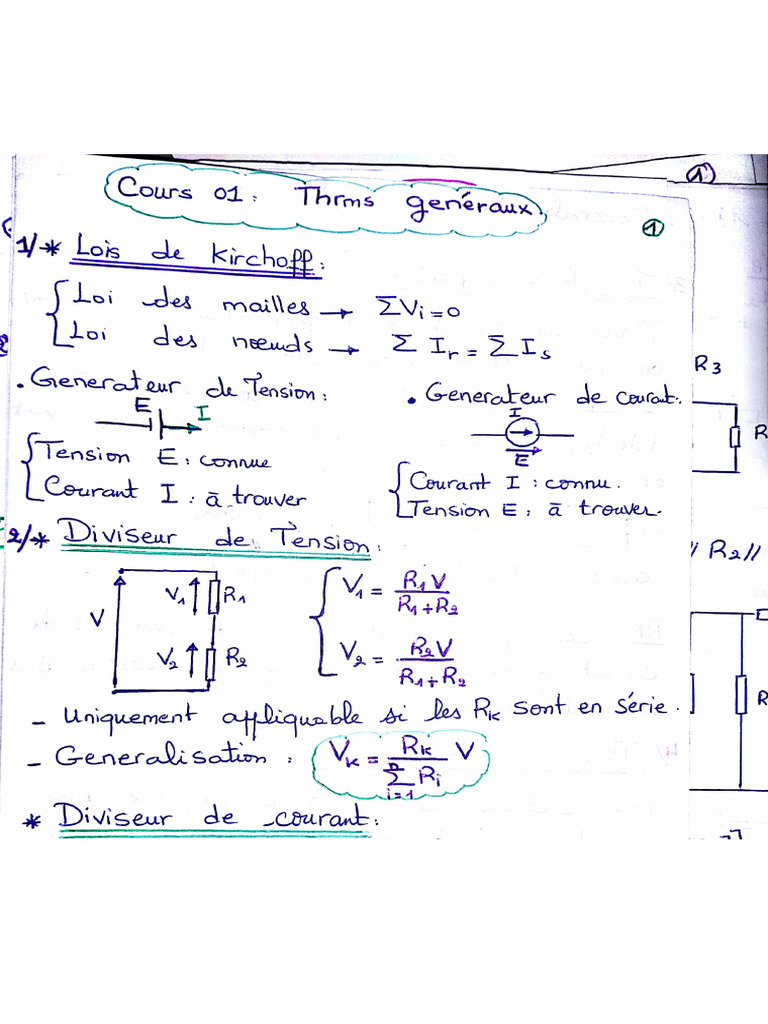 ①
Cours 01: Thrms généraux.
①
1/* Lois de Kirchoff:
Loi des mailles → ΣVi=0
Loi des nœuds → Σ Ir = Σ Is
• Generateur de Tension:
E I
Tension E: connue
Courant I: à trouver
• Generateur de courant:
I
E
Courant I: connu.
Tension E: à trouver.
2/* Diviseur de Tension:
V V1 R1
V2 R2
V1 = R1V / R1+R2
V2 = R2V / R1+R2
- Uniquement appliquable si les RK sont en série.
- Generalisation: VK = RK / Σ(i=1, n) Ri V
* Diviseur de courant:
R3
R
// R2 //
R